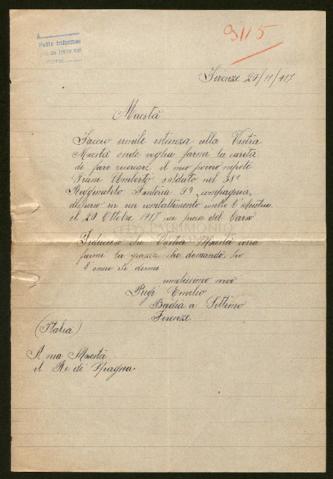 9115
Firenze 23/11/917
Maestà
Faccio umile istanza alla Vostra
Maestà onde voglia farmi la carità
di fare ricercare il mio povero nipote
Umberto soldato nel
Fanteria 9ª compagnia,
disperso in un combattimento contro l'Austria
il 29 Ottobre 1917 nei pressi del Carso
Fiducioso che Vostra Maestà vorrà
farmi la grazia che domando, ho
l'onore di dirmi
umilissimo servo
Emilio
Badia a Settimo
Firenze
(Italia)
A sua Maestà
il Re di Spagna